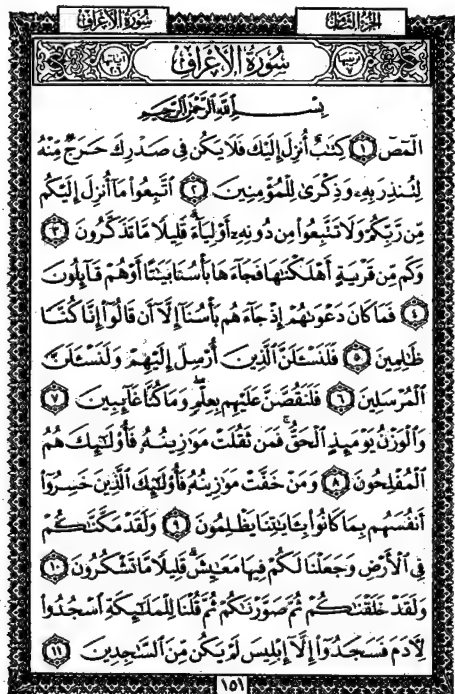 سُورَةُ الأَعْرَافِ
الجزء الثامن
ترتيبها ٧
سُورَةُ الأَعْرَافِ
آياتها ٢٠٦
بِسْمِ اللَّهِ الرَّحْمَٰنِ الرَّحِيمِ
الٓمٓصٓ ١ كِتَٰبٌ أُنزِلَ إِلَيْكَ فَلَا يَكُن فِى صَدْرِكَ حَرَجٌ مِّنْهُ
لِتُنذِرَ بِهِۦ وَذِكْرَىٰ لِلْمُؤْمِنِينَ ٢ ٱتَّبِعُوا۟ مَآ أُنزِلَ إِلَيْكُم
مِّن رَّبِّكُمْ وَلَا تَتَّبِعُوا۟ مِن دُونِهِۦٓ أَوْلِيَآءَ ۗ قَلِيلًا مَّا تَذَكَّرُونَ ٣
وَكَم مِّن قَرْيَةٍ أَهْلَكْنَٰهَا فَجَآءَهَا بَأْسُنَا بَيَٰتًا أَوْ هُمْ قَآئِلُونَ
٤ فَمَا كَانَ دَعْوَىٰهُمْ إِذْ جَآءَهُم بَأْسُنَآ إِلَّآ أَن قَالُوٓا۟ إِنَّا كُنَّا
ظَٰلِمِينَ ٥ فَلَنَسْـَٔلَنَّ ٱلَّذِينَ أُرْسِلَ إِلَيْهِمْ وَلَنَسْـَٔلَنَّ
ٱلْمُرْسَلِينَ ٦ فَلَنَقُصَّنَّ عَلَيْهِم بِعِلْمٍ ۖ وَمَا كُنَّا غَآئِبِينَ ٧
وَٱلْوَزْنُ يَوْمَئِذٍ ٱلْحَقُّ ۚ فَمَن ثَقُلَتْ مَوَٰزِينُهُۥ فَأُو۟لَٰٓئِكَ هُمُ
ٱلْمُفْلِحُونَ ٨ وَمَنْ خَفَّتْ مَوَٰزِينُهُۥ فَأُو۟لَٰٓئِكَ ٱلَّذِينَ خَسِرُوٓا۟
أَنفُسَهُم بِمَا كَانُوا۟ بِـَٔايَٰتِنَا يَظْلِمُونَ ٩ وَلَقَدْ مَكَّنَّٰكُمْ
فِى ٱلْأَرْضِ وَجَعَلْنَا لَكُمْ فِيهَا مَعَٰيِشَ ۗ قَلِيلًا مَّا تَشْكُرُونَ ١٠
وَلَقَدْ خَلَقْنَٰكُمْ ثُمَّ صَوَّرْنَٰكُمْ ثُمَّ قُلْنَا لِلْمَلَٰٓئِكَةِ ٱسْجُدُوا۟
لِـَٔادَمَ فَسَجَدُوٓا۟ إِلَّآ إِبْلِيسَ لَمْ يَكُن مِّنَ ٱلسَّٰجِدِينَ ١١
١٥١